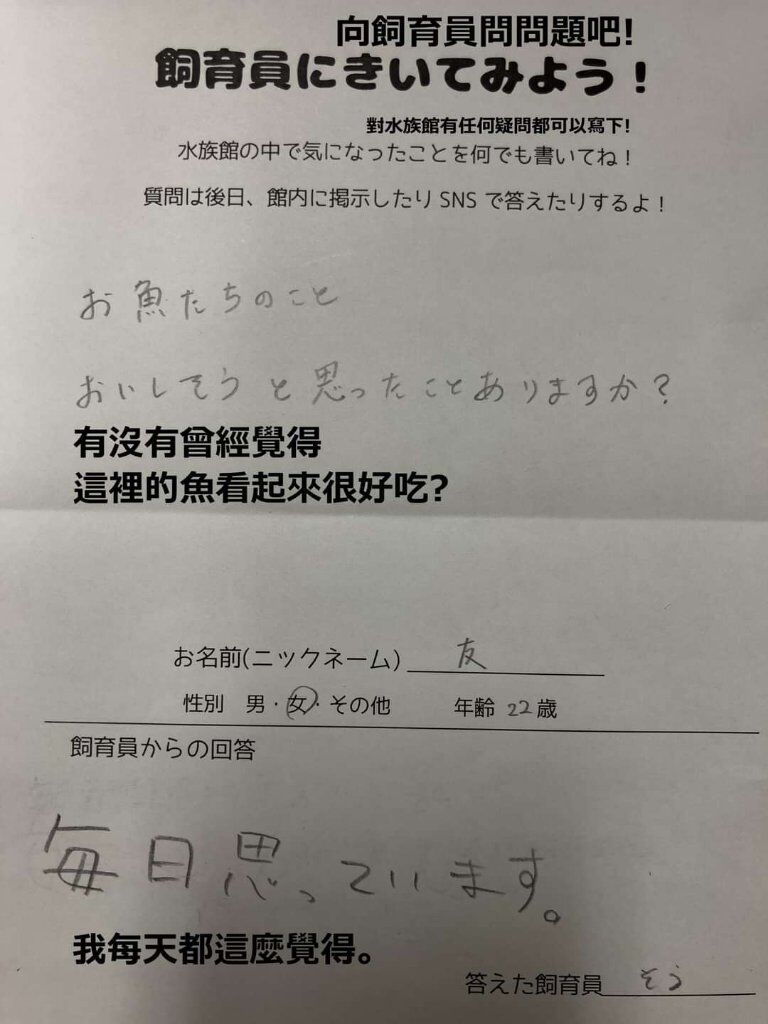 向飼育員問問題吧!
飼育員にきいてみよう！
對水族館有任何疑問都可以寫下!
水族館の中で気になったことを何でも書いてね！
質問は後日、館内に掲示したり SNS で答えたりするよ！
お魚たちのこと
おいしそうと思ったことありますか？
有沒有曾經覺得
這裡的魚看起來很好吃?
お名前(ニックネーム) 友
性別 男・女・その他 年齢 22 歳
飼育員からの回答
毎日思っています。
我每天都這麼覺得。
答えた飼育員 そう